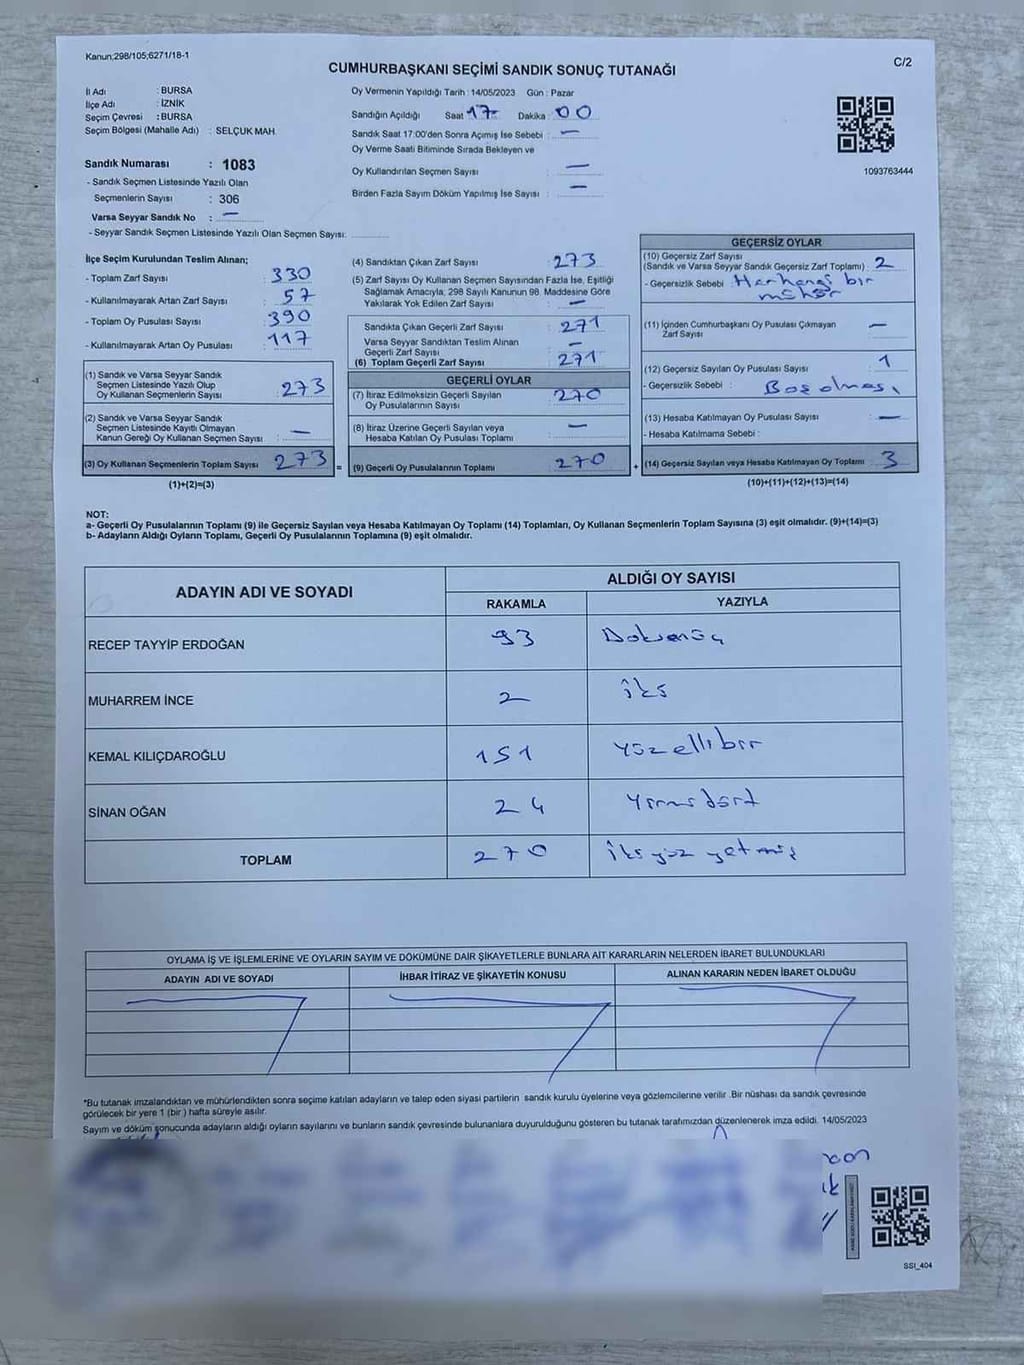 Kanun;298/105;6271/18-1
CUMHURBAŞKANI SEÇİMİ SANDIK SONUÇ TUTANAĞI
C/2
İl Adı : BURSA
İlçe Adı : İZNİK
Seçim Çevresi : BURSA
Seçim Bölgesi (Mahalle Adı) : SELÇUK MAH.
Oy Vermenin Yapıldığı Tarih : 14/05/2023 Gün : Pazar
Sandığın Açıldığı Saat 17 Dakika : 00
Sandık Saat 17:00'den Sonra Açımış İse Sebebi : —
Oy Verme Saati Bitiminde Sırada Bekleyen ve
Oy Kullandırılan Seçmen Sayısı : —
Birden Fazla Sayım Döküm Yapılmış İse Sayısı : —
1093763444
Sandık Numarası : 1083
- Sandık Seçmen Listesinde Yazılı Olan
Seçmenlerin Sayısı : 306
Varsa Seyyar Sandık No : —
- Seyyar Sandık Seçmen Listesinde Yazılı Olan Seçmen Sayısı:
İlçe Seçim Kurulundan Teslim Alınan;
- Toplam Zarf Sayısı : 330
- Kullanılmayarak Artan Zarf Sayısı : 57
- Toplam Oy Pusulası Sayısı : 390
- Kullanılmayarak Artan Oy Pusulası : 117
(1) Sandık ve Varsa Seyyar Sandık
Seçmen Listesinde Yazılı Olup
Oy Kullanan Seçmenlerin Sayısı : 273
(2) Sandık ve Varsa Seyyar Sandık
Seçmen Listesinde Kayıtlı Olmayan
Kanun Gereği Oy Kullanan Seçmen Sayısı : —
(3) Oy Kullanan Seçmenlerin Toplam Sayısı : 273
(1)+(2)=(3)
=
(4) Sandıktan Çıkan Zarf Sayısı : 273
(5) Zarf Sayısı Oy Kullanan Seçmen Sayısından Fazla İse, Eşitliği
Sağlamak Amacıyla, 298 Sayılı Kanunun 98. Maddesine Göre
Yakılarak Yok Edilen Zarf Sayısı : —
Sandıkta Çıkan Geçerli Zarf Sayısı : 271
Varsa Seyyar Sandıktan Teslim Alınan
Geçerli Zarf Sayısı : —
(6) Toplam Geçerli Zarf Sayısı : 271
GEÇERLİ OYLAR
(7) İtiraz Edilmeksizin Geçerli Sayılan
Oy Pusulalarının Sayısı : 270
(8) İtiraz Üzerine Geçerli Sayılan veya
Hesaba Katılan Oy Pusulası Toplamı : —
(9) Geçerli Oy Pusulalarının Toplamı : 270
+
GEÇERSİZ OYLAR
(10) Geçersiz Zarf Sayısı
(Sandık ve Varsa Seyyar Sandık Geçersiz Zarf Toplamı) : 2
- Geçersizlik Sebebi : Herhangi bir
mühür
(11) İçinden Cumhurbaşkanı Oy Pusulası Çıkmayan
Zarf Sayısı : —
(12) Geçersiz Sayılan Oy Pusulası Sayısı : 1
- Geçersizlik Sebebi : Boş olması
(13) Hesaba Katılmayan Oy Pusulası Sayısı : —
- Hesaba Katılmama Sebebi :
(14) Geçersiz Sayılan veya Hesaba Katılmayan Oy Toplamı : 3
(10)+(11)+(12)+(13)=(14)
NOT:
a- Geçerli Oy Pusulalarının Toplamı (9) ile Geçersiz Sayılan veya Hesaba Katılmayan Oy Toplamı (14) Toplamları, Oy Kullanan Seçmenlerin Toplam Sayısına (3) eşit olmalıdır. (9)+(14)=(3)
b- Adayların Aldığı Oyların Toplamı, Geçerli Oy Pusulalarının Toplamına (9) eşit olmalıdır.
ADAYIN ADI VE SOYADI
ALDIĞI OY SAYISI
RAKAMLA YAZIYLA
RECEP TAYYİP ERDOĞAN 93
MUHARREM İNCE 2 iki
KEMAL KILIÇDAROĞLU 151 Yüzellibir
SİNAN OĞAN 24
TOPLAM 270 ikiyüz yetmiş
OYLAMA İŞ VE İŞLEMLERİNE VE OYLARIN SAYIM VE DÖKÜMÜNE DAİR ŞİKAYETLERLE BUNLARA AİT KARARLARIN NELERDEN İBARET BULUNDUKLARI
ADAYIN ADI VE SOYADI İHBAR İTİRAZ VE ŞİKAYETİN KONUSU ALINAN KARARIN NEDEN İBARET OLDUĞU
*Bu tutanak imzalandıktan ve mühürlendikten sonra seçime katılan adayların ve talep eden siyasi partilerin sandık kurulu üyelerine veya gözlemcilerine verilir .Bir nüshası da sandık çevresinde
görülecek bir yere 1 (bir ) hafta süreyle asılır.
Sayım ve döküm sonucunda adayların aldığı oyların sayılarını ve bunların sandık çevresinde bulunanlara duyurulduğunu gösteren bu tutanak tarafımızdan düzenlenerek imza edildi. 14/05/2023
SSI_404